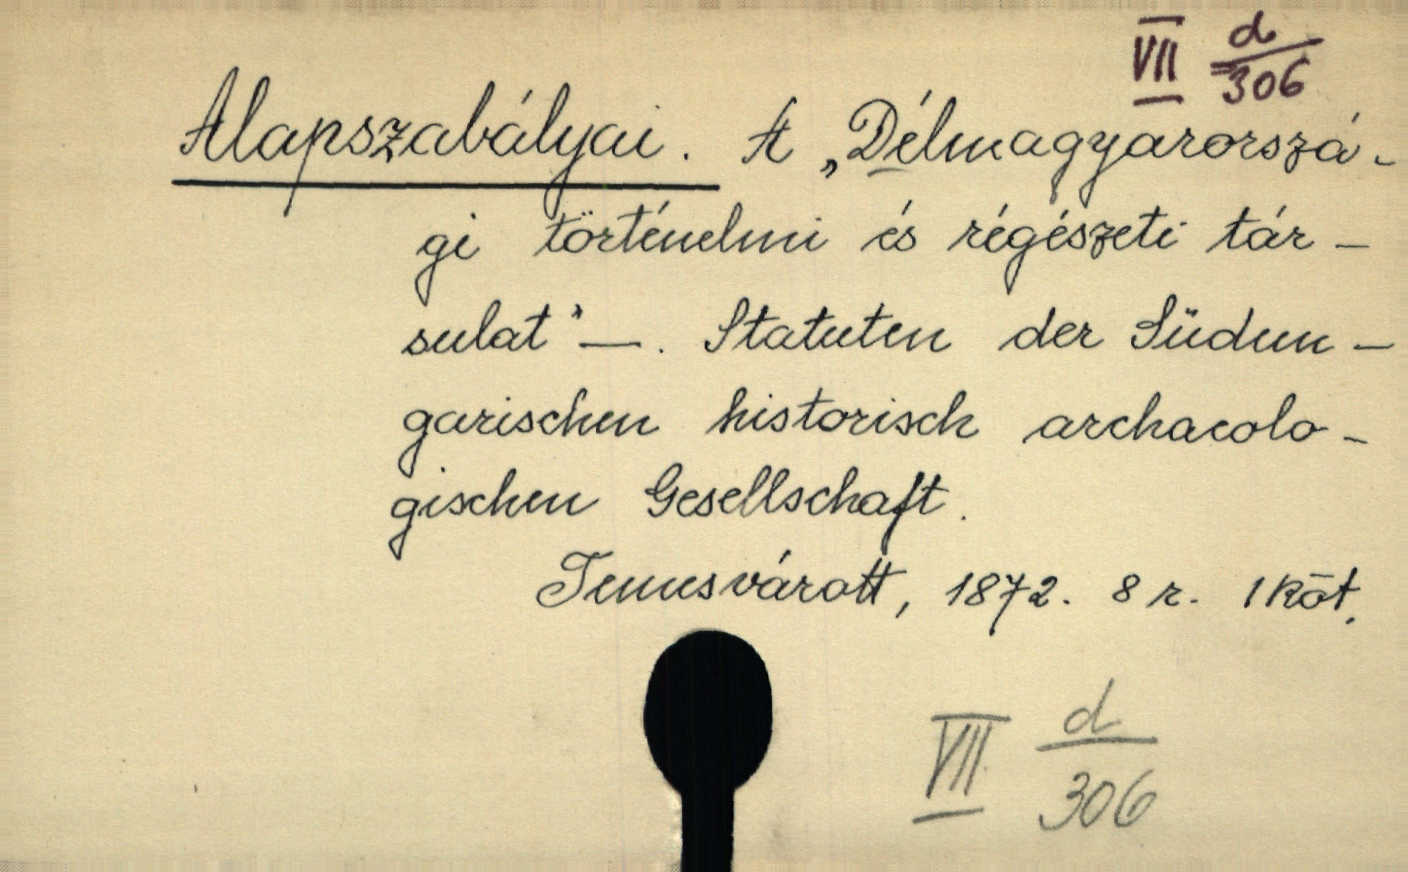 VII d/306
Alapszabályai. A „Délmagyarorszá-
gi történelmi és régészeti tár-
sulat" —. Statuten der Südun-
garischen historisch archaeolo-
gischen Gesellschaft.
Temesvárott, 1872. 8 r. 1 köt.
VII d/306